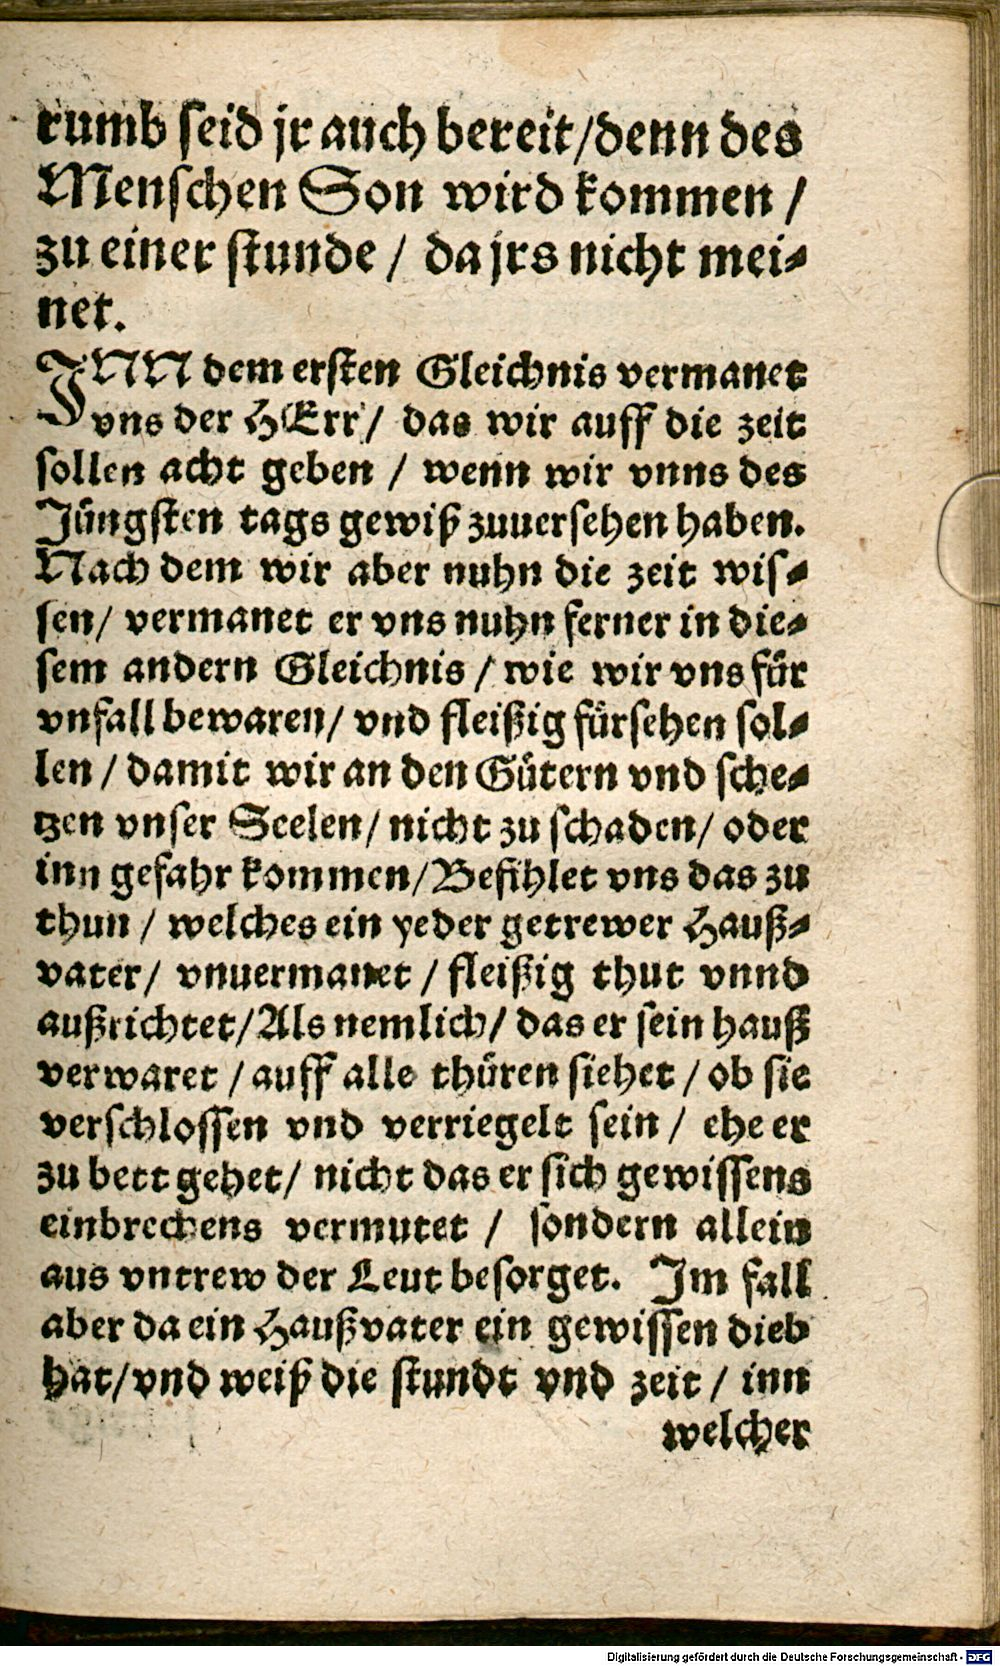 rumb seid jr auch bereit/denn des
Menschen Son wird kommen /
zu einer stunde / da jrs nicht mei-
net.
INN dem ersten Gleichnis vermanet
vns der HErr/ das wir auff die zeit
sollen acht geben / wenn wir vnns des
Jüngsten tags gewiß zuuersehen haben.
Nach dem wir aber nuhn die zeit wis-
sen/ vermanet er vns nuhn ferner in die-
sem andern Gleichnis / wie wir vns für
vnfall bewaren/ vnd fleißig fürsehen sol-
len / damit wir an den Gütern vnd sche-
tzen vnser Seelen/ nicht zu schaden/ oder
inn gefahr kommen/Befihlet vns das zu
thun / welches ein yeder getrewer Hauß-
vater/ vnuermanet / fleißig thut vnnd
außrichtet/Als nemlich/ das er sein hauß
verwaret / auff alle thüren siehet / ob sie
verschlossen vnd verriegelt sein / ehe er
zu bett gehet/ nicht das er sich gewissens
einbrechens vermutet / sondern allein
aus vntrew der Leut besorget. Im fall
aber da ein Haußvater ein gewissen dieb
hat/vnd weiß die stundt vnd zeit / inn
welcher
Digitalisierung gefördert durch die Deutsche Forschungsgemeinschaft - DFG